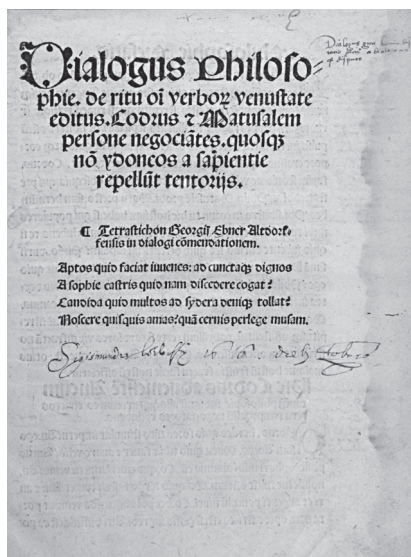 Dialogus Philoso⸗
phie. de ritu oī verboꝝ venustate
editus. Codrus ⁊ Matusalem
persone negociātes. quosqꝫ
nō ydoneos a sapientie
repellūt tentorijs.
¶ Tetrastichon Georgij Ebner Altdorf⸗
fensis in dialogi cōmendationem.
Aptos quid faciat iuuenes: ad cunctaqꝫ dignos
A sophie castris quid nam discedere cogat?
Candida quid multos ad sydera deniqꝫ tollat?
Noscere quisquis amas? quā cernis perlege musam.